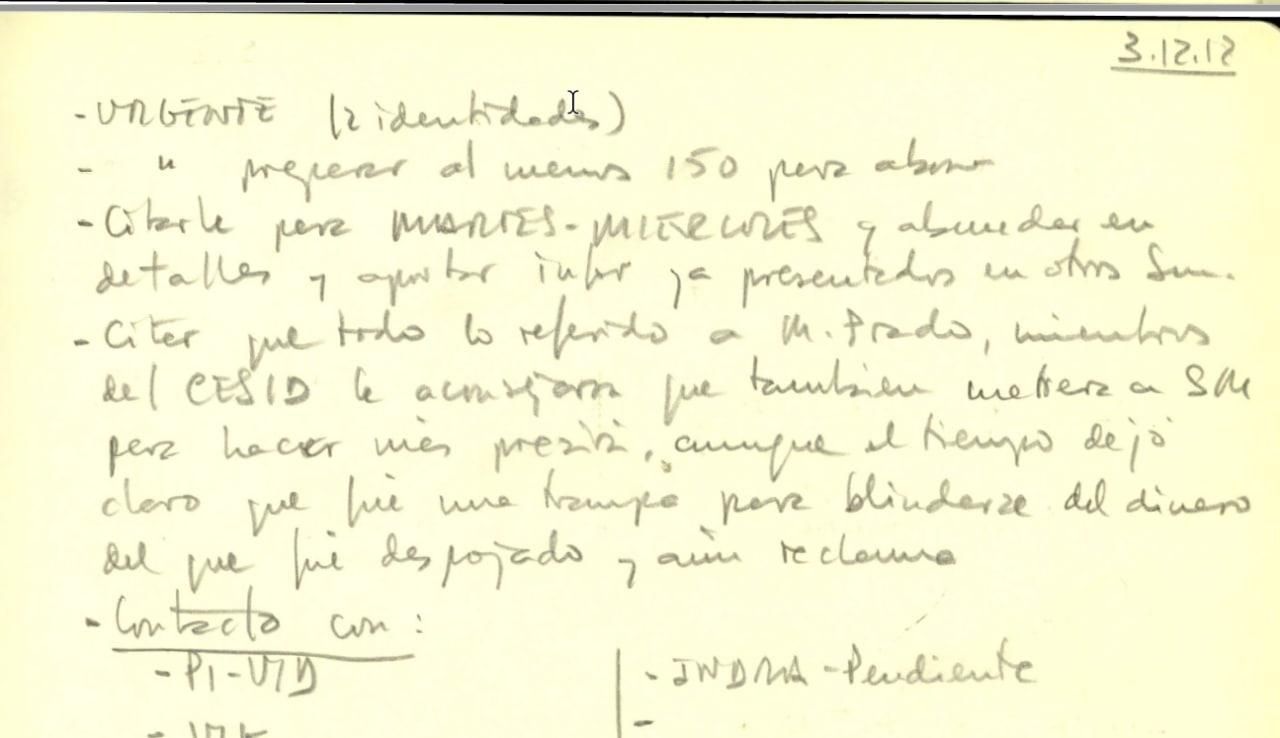 3.12.12
- URGENTE (2 identidades)
- " preparar al menos 150 para abono
- Citarle para MARTES-MIERCOLES y abundar en
detalles y aportar infor ya presentados en otros Sum.
- Citar que todo lo referido a M. Prado, mientras
del CESID le aconsejaron que también metiera a SM
para hacer más presión, aunque el tiempo dejó
claro que fué una trampa para blindarse del dinero
del que fué despojado y aún reclama
- Contacto con:
- PI-VID
- INDRA - Pendiente
-